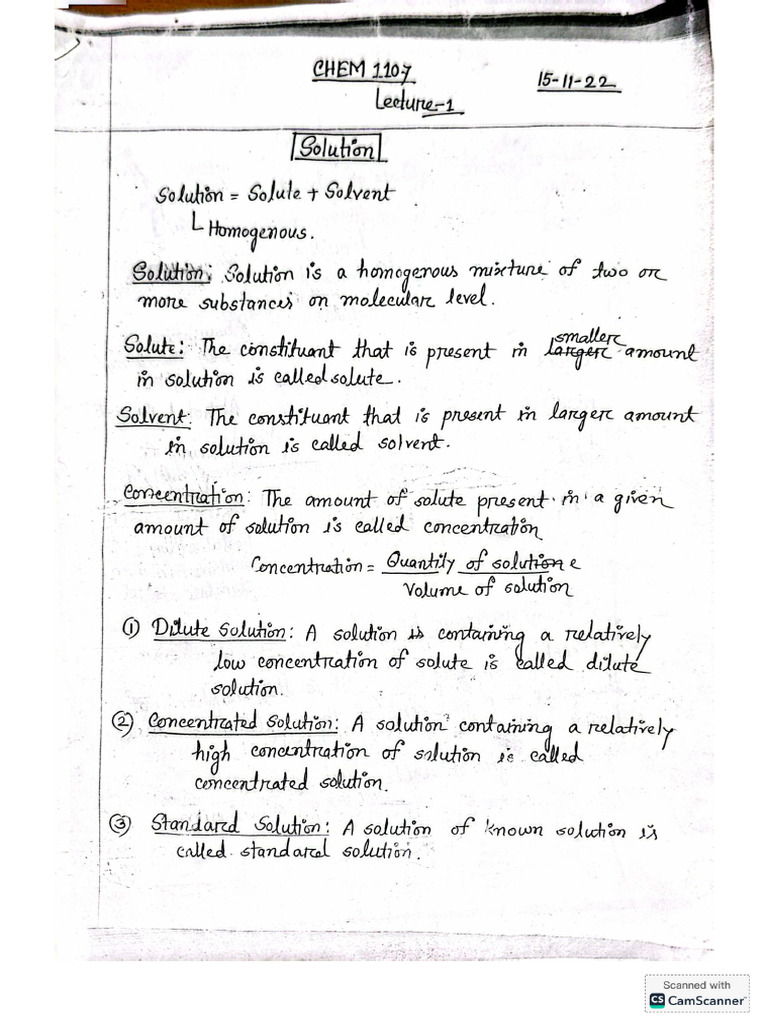 CHEM 1107
15-11-22
Lecture-1
Solution
Solution = Solute + Solvent
Homogenous.
Solution: Solution is a homogenous mixture of two or
more substances on molecular level.
smaller
Solute: The constituant that is present in larger amount
in solution is called solute.
Solvent: The constituant that is present in larger amount
in solution is called solvent.
Concentration: The amount of solute present in a given
amount of solution is called concentration
Concentration = Quantity of solution e
Volume of solution
① Dilute Solution: A solution is containing a relatively
low concentration of solute is called dilute
solution.
② Concentrated Solution: A solution containing a relatively
high concentration of solution is called
concentrated solution.
③ Standard Solution: A solution of known solution is
called standard solution.
Scanned with
CS CamScanner